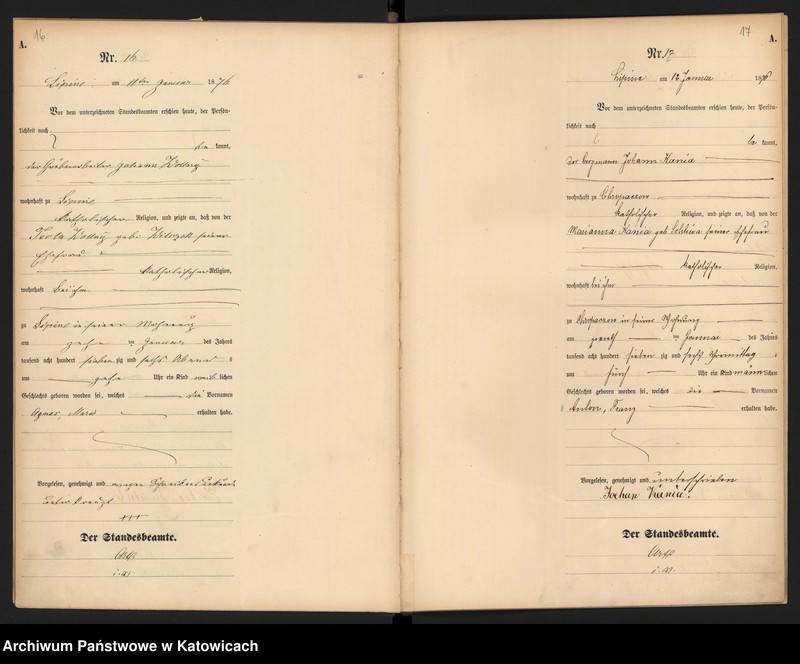 16
A.
Nr. 16
Lipine am 11ten Januar 1876
Vor dem unterzeichneten Standesbeamten erschien heute, der Persön-
lichkeit nach
kannt,
der Grubenarbeiter Johann Wollny
wohnhaft zu Lipine
katholischer Religion, und zeigte an, daß von der
Wollny geb. seiner
Ehefrau
katholischer Religion,
wohnhaft bei ihm
zu Lipine in seiner Wohnung
am zehn ten Januar des Jahres
tausend acht hundert sieben zig und sechs Abend s
um zehn Uhr ein Kind weib lichen
Geschlechts geboren worden sei, welches die Vornamen
Agnes, erhalten habe.
Vorgelesen, genehmigt und wegen
unterkreuzt
+++
Der Standesbeamte.
i. V.
17
A.
Nr. 17
Lipine am 12 Januar 1876
Vor dem unterzeichneten Standesbeamten erschien heute, der Persön-
lichkeit nach
be kannt,
der Bergmann Johann Kania
wohnhaft zu Chropaczow
katholischer Religion, und zeigte an, daß von der
Marianna Kania geb. seiner Ehefrau
katholischer Religion,
wohnhaft bei ihm
zu Chropaczow in seiner Wohnung
am ten Januar des Jahres
tausend acht hundert sieben zig und sechs Vormittag s
um fünf Uhr ein Kind männ lichen
Geschlechts geboren worden sei, welches die Vornamen
Anton, Franz erhalten habe.
Vorgelesen, genehmigt und unterschrieben
Johan Kania.
Der Standesbeamte.
i. V.
Archiwum Państwowe w Katowicach